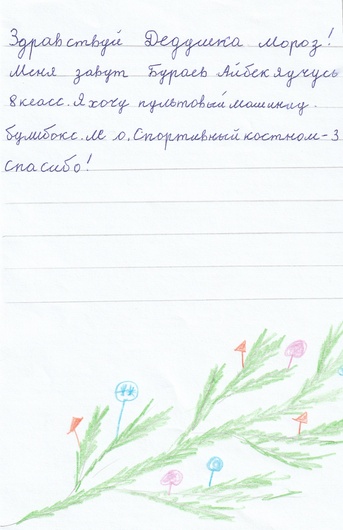 Здравствуй Дедушка мороз!
Меня завут Бураев Айбек я учусь
8 класс. Я хочу пультовый машинку.
бумбокс. М о. Спортивный костном-3
спасибо!